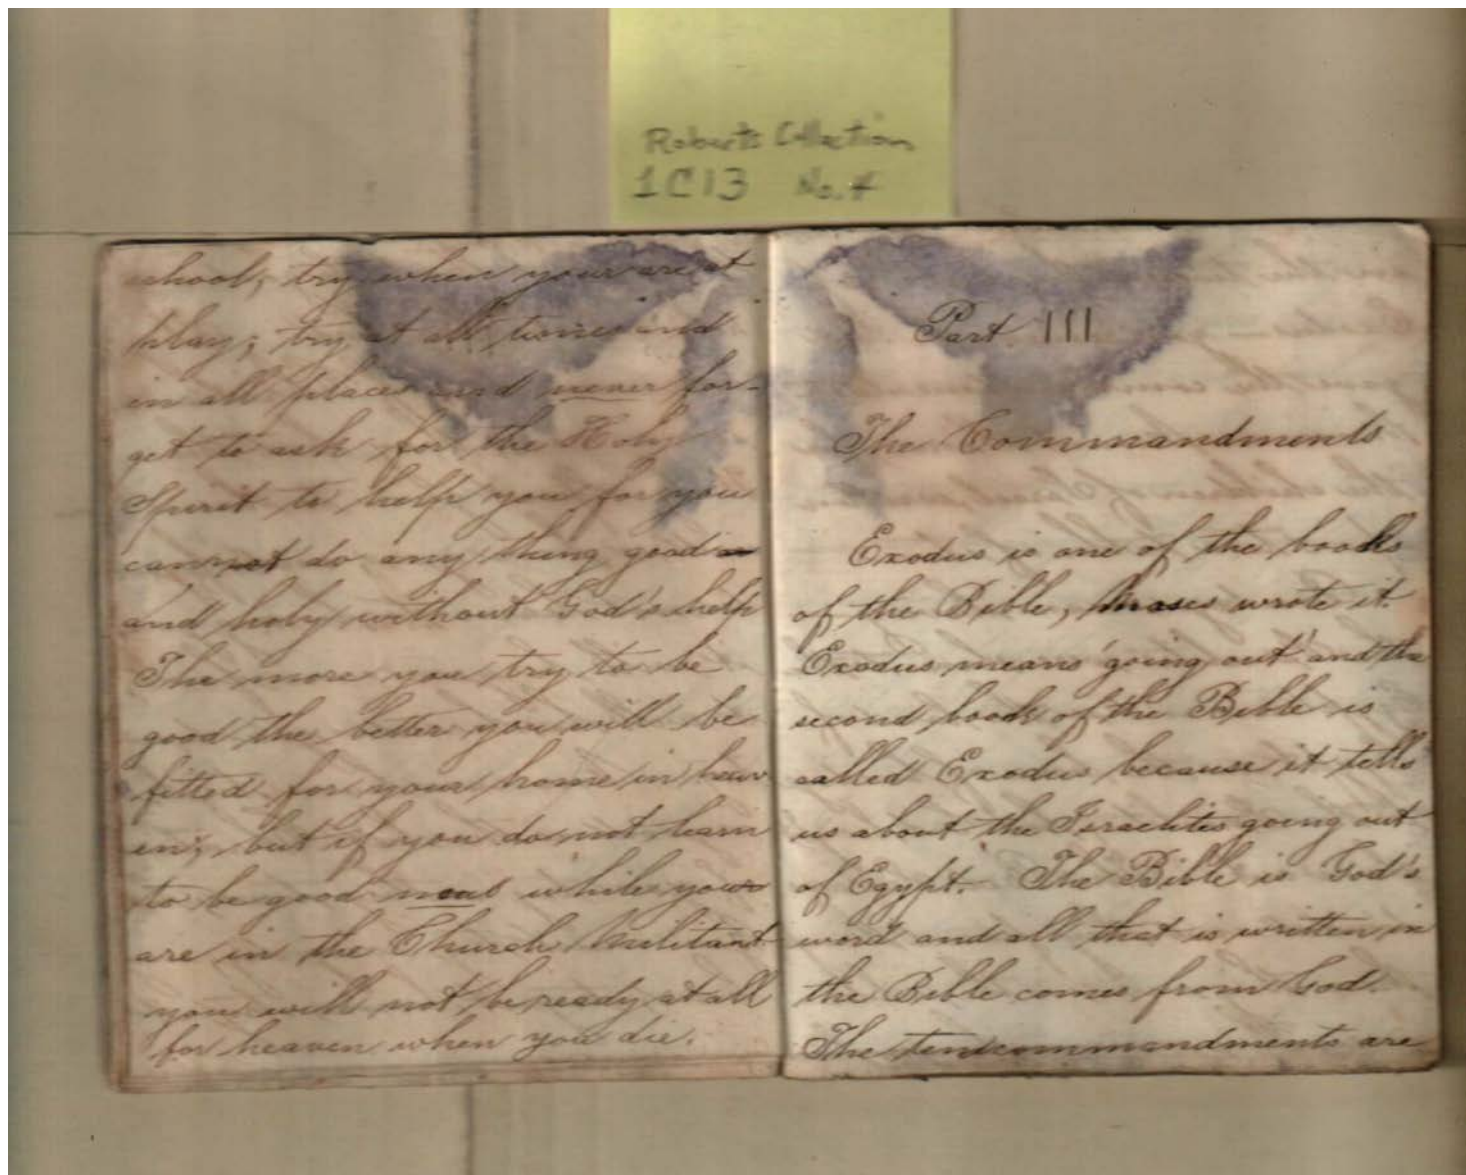 Roberts Collection
1C13 No. 4
school; try when your are at
play; try at all times and
in all places and never for-
get to ask for the Holy
Spirit to help you for you
cannot do any thing good
and holy without God's help
The more you try to be
good the better you will be
fitted for your home in heav
en; but if you do not learn
to be good now while you
are in the Church Militant
you will not be ready at all
for heaven when you die.
Part III
The Commandments
Exodus is one of the books
of the Bible, Moses wrote it.
Exodus means 'going out' and the
second book of the Bible is
called Exodus because it tells
us about the Israelites going out
of Egypt. The Bible is God's
word and all that is written in
the Bible comes from God.
The ten commandments are